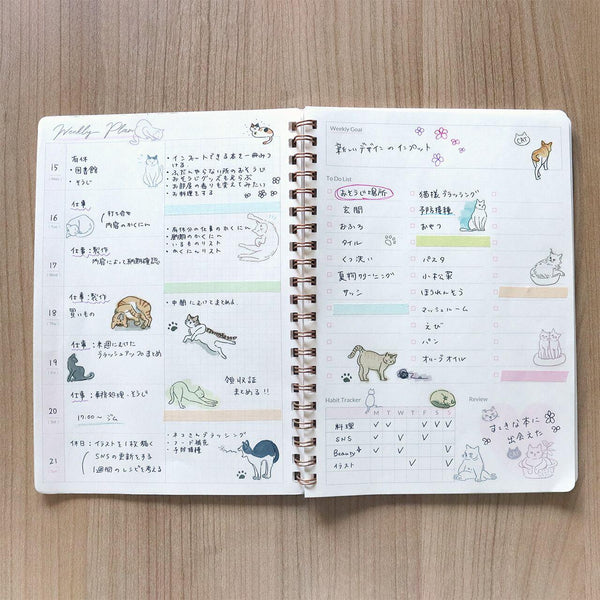 Weekly Plan
15
有休
・図書館
・そうじ
・インプットできる本を一冊みつける
・ふだんやらない所のおそうじ
・おそうじグッズもえらぶ
・お部屋の香りも変えてみたい
・お料理をする
16
仕事
打ち合せ
内容のかくにん
・有休分の仕事のかくにん
・納期のかくにん
・いるものリスト
・かくにんリスト
17
仕事:製作
内容によって納期確認
18
仕事:製作
買いもの
・中間にむけてまとめる。
19
仕事:来週にむけた
ブラッシュアップまとめ
領収証
まとめる!!
20
仕事:事務処理・そうじ
17:00〜 ジム
21
休日:イラストを1枚描く
SNSの更新をする
1週間のレシピを考える
・ネコさんブラッシング
・フード補充
・予防接種
Weekly Goal
新しいデザインのインプット
CAT
To Do List
おそうじ場所
玄関
おふろ
タイル
くつ洗い
夏物クリーニング
サッシ
猫様ブラッシング
予防接種
おやつ
パスタ
小松菜
ほうれんそう
マッシュルーム
えび
パン
オリーブオイル
Habit Tracker
M T W T F S S
料理
SNS
Beauty
イラスト
Review
すてきな本に
出会えた